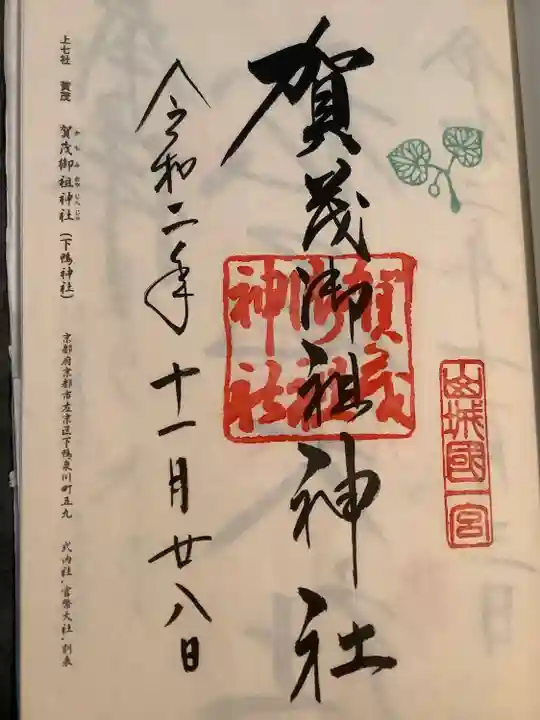 山城國一宮
賀茂御祖神社
賀茂
御祖
神社
令和二年十一月廿八日
上七社 賀茂 賀茂御祖神社(下鴨神社) 京都府京都市左京区下鴨泉川町五九 式内社・官幣大社・別表
かもみおやじんじゃ